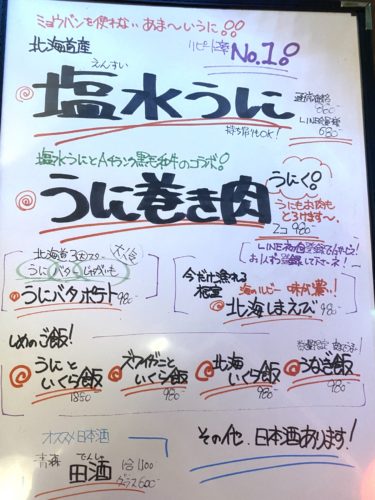 ミョウバンを使わない あま〜いうに!!
北海道産
リピート率 No.1!
えんすい
塩水うに
通常価格
980
LINE価格
680-
持ち帰りもOK!
塩水うにとAランク黒毛和牛のコラボ!
うに巻き肉
うにく!
うにもお肉も
とろけます〜。
2コ 980-
お得に登録して下さーい!
北海道3大スター
うに バタ じゃがいも
うにバタポテト 980-
今だけ塗れる
海のルビー 味が濃い!
北海しまえび 980-
しめのご飯!
うにと
いくら飯
1850
ズワイガニと
いくら飯
980-
北海
いくら飯
980-
うなぎ飯
980-
オススメ日本酒
青森
でんしゅ
田酒
1合 1100
グラス600-
その他、日本酒あります!